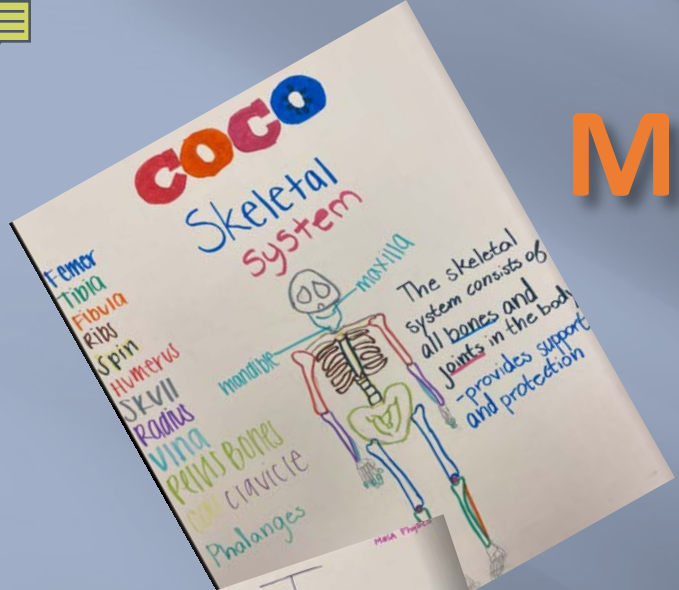 M
COCO
Skeletal
System
Femor
Tibia
Fibula
Ribs
Spin
Humerus
Skull
Radius
Vlna
Pelvis Bones
Clavicle
Phalanges
maxilla
mandible
The skeletal
system consists of
all bones and
joints in the body
-provides support
and protection